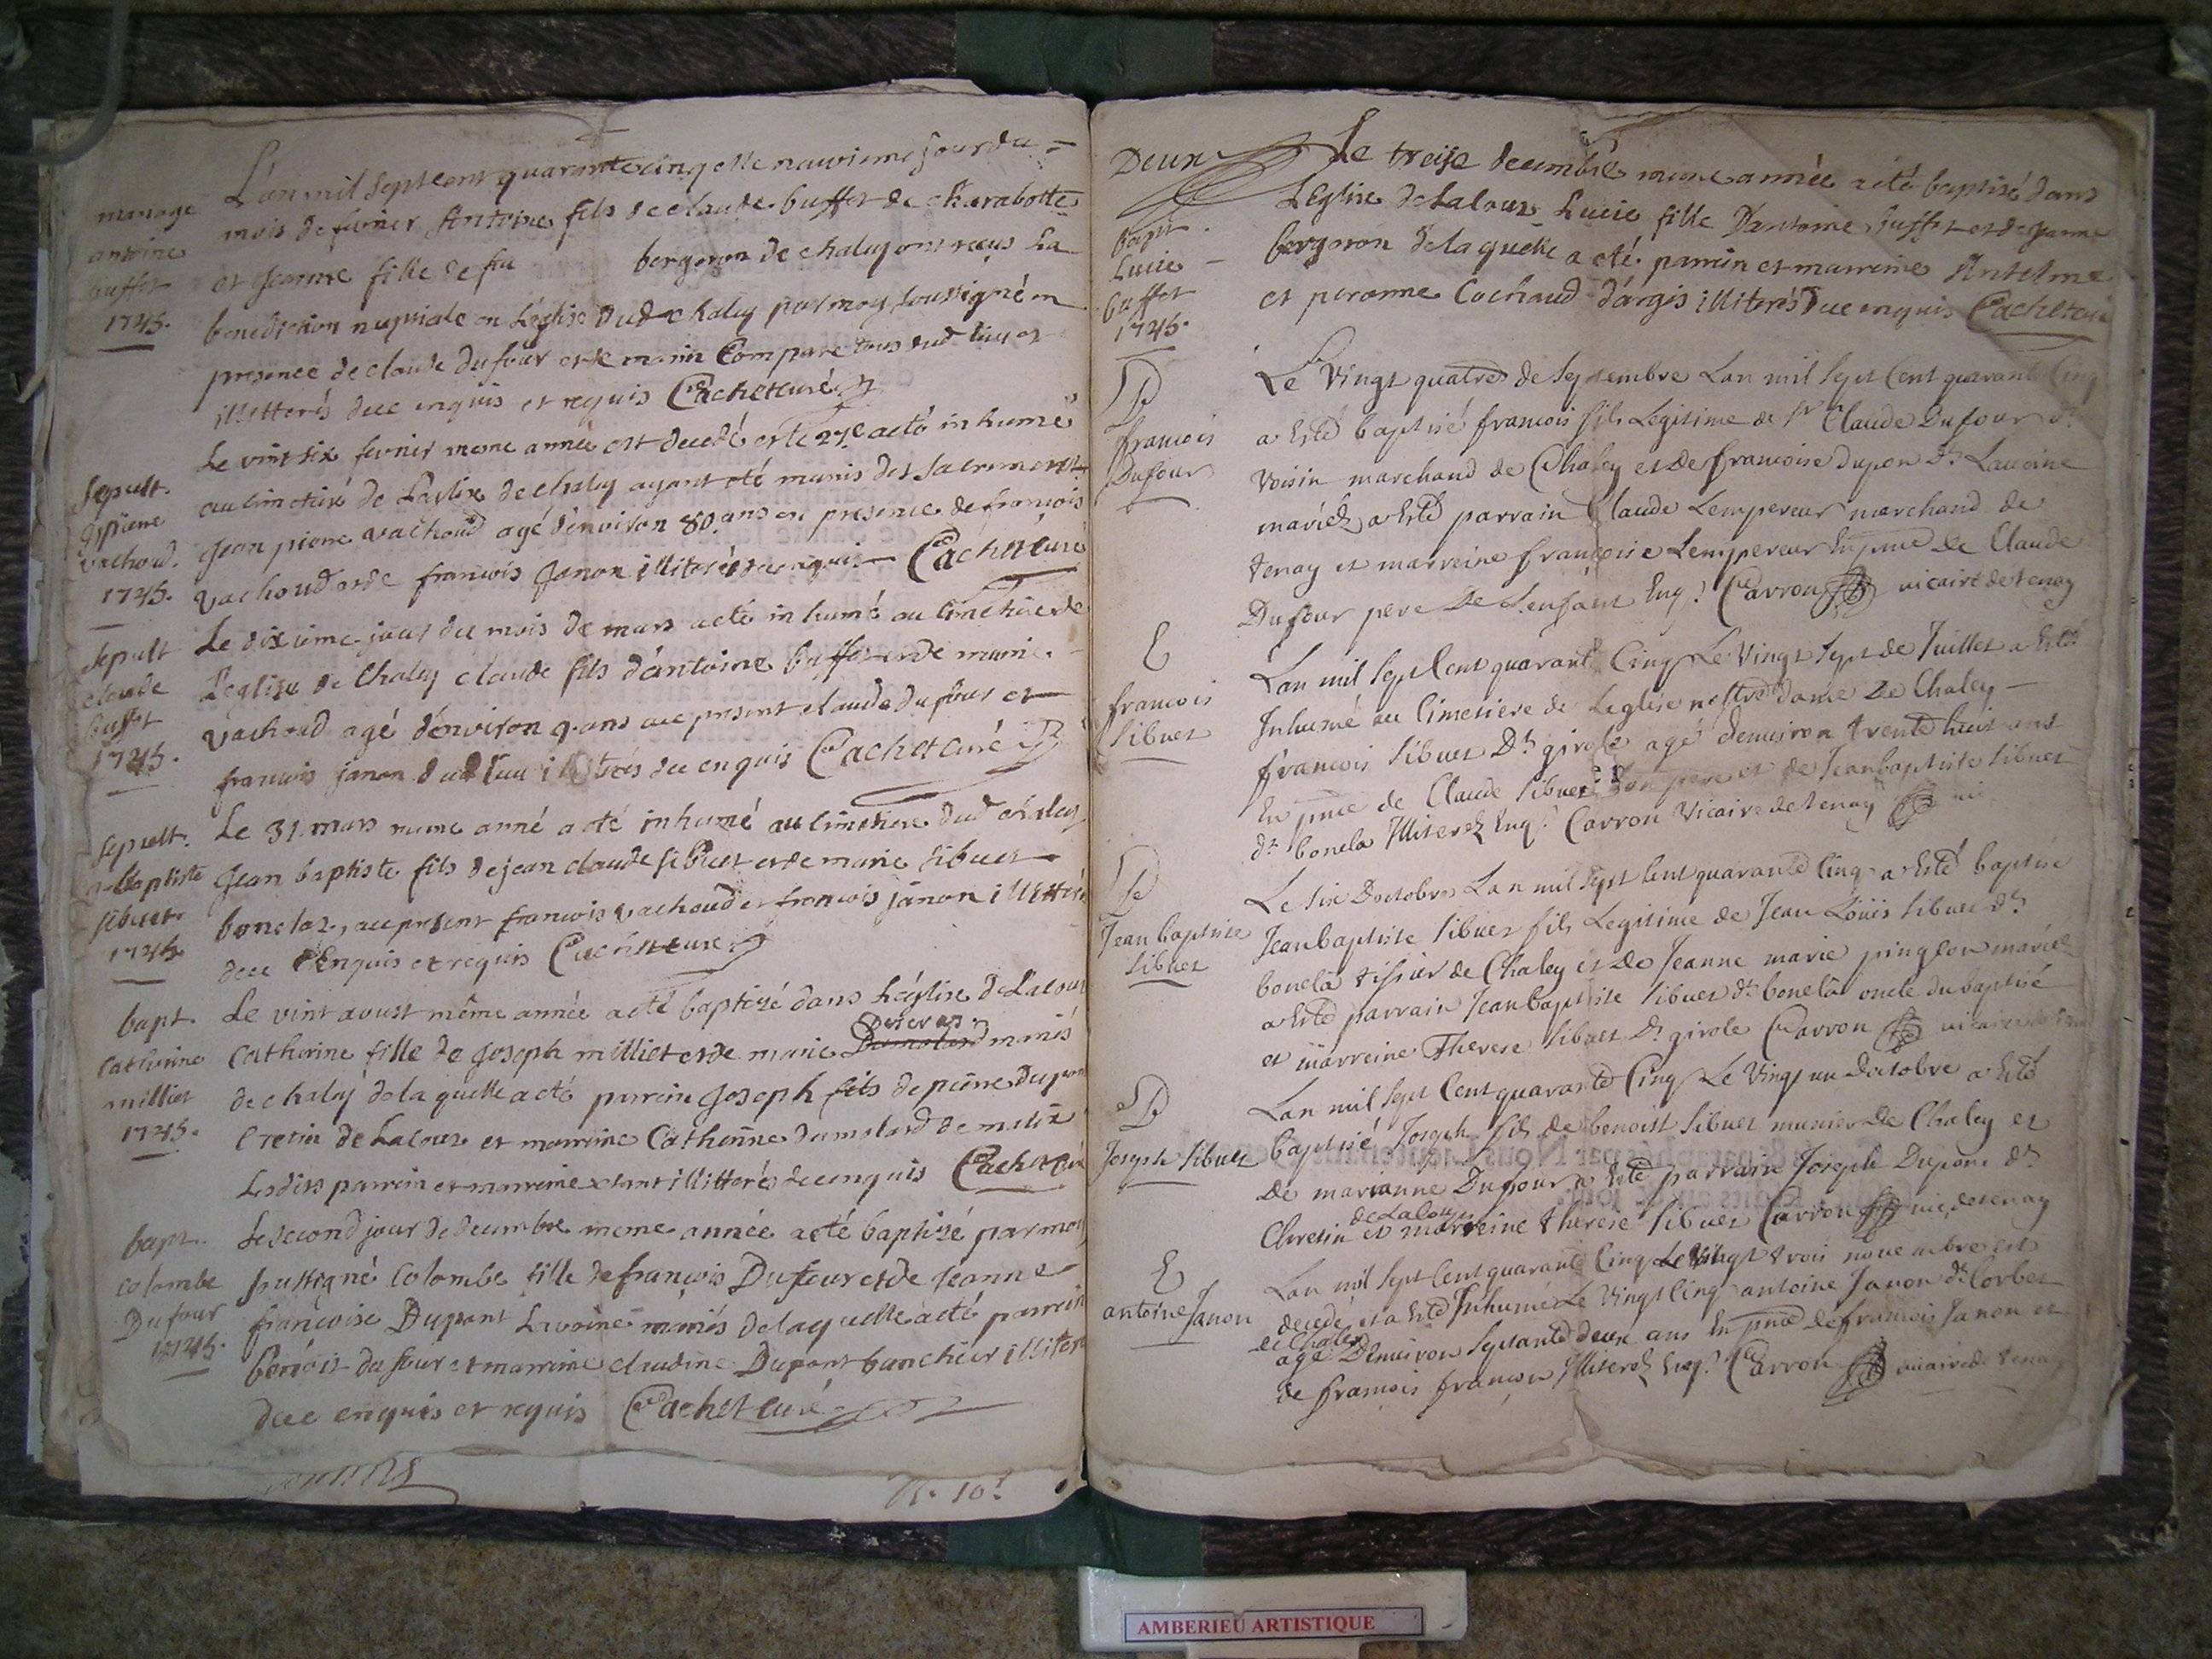 mariage
antoine
buffet
1745.
L'an mil septcent quarante cinq et le neuvieme jour du
mois de fevrier Antoine fils de claude buffet de charabotte
et Jeanne fille de feu bergeron de chaley ont reçus La
benediction nuptiale en L'église dud chaley par moy soussigné en
presence de claude dufour et de marin Compare tous dud lieu et
illitterés dece enquis et requis Cachet curé
Sepult.
jpierre
vachoud.
1745.
Le vint six fevrier meme année est decedé et le 27e a eté inhumé
au cimetiere de L'eglise de chaley ayant eté munis des sacrements
Jean pierre vachoud agé d'environ 80 ans en presence de francois
vachoud et de francois Janon illiterés de ce enquis Cachet curé
Sepult
claude
buffet
1745.
Le dixieme jour du mois de mars a eté inhumé au cimetiere de
L'eglise de Chaley claude fils d'antoine buffet et de marie
vachoud agé d'environ 9 ans au present claude dufour et
francois janon dud lieu illiterés de ce enquis Cachet curé
Sepult.
Baptiste
sibuet
1745
Le 31 mars meme anné a eté inhumé au cimetiere dud chaley
Jean baptiste fils de jean claude sibuet et de marie sibuet
bonelaz, au present francois vachoud et francois janon illitterés
dece Enquis et requis Cachet curé
bapt.
Catherine
milliet
1745.
Le vint aoust même année a eté baptizé dans L'église de Lacoux
Deseras
Catherine fille de Joseph milliet et de marie Dumolard mariés
de chaley de laquelle a eté parrein Joseph fils de pierre dupont
Cretin de Lacoux et marreine Catherine dumolard de
Lesdits parrein et marreine etant illitterés de ce enquis Cachet curé
bapt.
Colombe
Dufour
1745.
Le second jour de decembre meme année a eté baptizé par moy
soussigné Colombe fille de françois Dufour et de Jeanne
françoise Dupont Lavoine mariés de laquelle a eté parrein
benoit dufour et marreine claudine Dupont banchier illiterés
dece enquis et requis Cachet curé
Deux
bapt.
Lucie
buffet
1745.
Le treise decembre meme année a eté baptisé dans
L'Eglise de Lacoux Lucie fille D'antoine buffet et de jeanne
bergeron de laquelle a eté parrein et marreine Antelme
et peronne Cochaud d'argis illiterés de ce enquis Cachet curé
B
francois
Dufour
Le Vingt quatre de Septembre Lan mil Sept Cent quarante Cinq
a Esté baptisé francois fils Legitime de Sr Claude Dufour dt
Voisin marchand de Chaley et de francoise dupon dt Lavoine
mariez a Esté parrain Claude Lempereur marchand de
tenay et marreine françoise Lempereur En pnce de Claude
Dufour pere De L'enfant Enq. Carron vicaire de tenay
E
francois
Sibuet
Lan mil Sept Cent quarante Cinq Le Vingt Sept de Juillet a Esté
Inhumé au Cimetiere de Leglise nostre dame De Chaley
francois Sibuet Dt girole agé denviron trente huit ans
En pnce de Claude Sibuet Son pere et de Jean baptiste Sibuet
dt bonela Illiterez Enq. Carron Vicaire de tenay
B
Jean baptiste
Sibuet
Le Six Doctobre Lan mil Sept Cent quarante Cinq a Esté baptisé
Jean baptiste Sibuet fils Legitime de Jean Loüis Sibuet dt
bonela tissier de Chaley et de Jeanne marie pinglon mariez
a Esté parrain Jean baptiste Sibuet dt bonela oncle du baptisé
et marreine Therese Sibuet Dt girole Carron vicaire de tenay
B
Joseph Sibuet
Lan mil Sept Cent quarante Cinq Le Vingt un Doctobre a Esté
baptisé Joseph fils de benoist Sibuet munier De Chaley et
De marianne Dufour a Esté parrain Joseph Dupon dt
de Lacoux
Chretin et marreine therese Sibuet Carron vic. de tenay
E
antoine Janon
Lan mil Sept Cent quarante Cinq Le Vingt trois novembre est
decedé et a Esté Inhumé Le Vingt Cinq antoine Janon dt Corbet
de Chaley
agé Denviron Septante deux ans En pnce de francois Janon et
de francois françon Illiterez Enq. Carron vicaire de tenay
AMBERIEU ARTISTIQUE